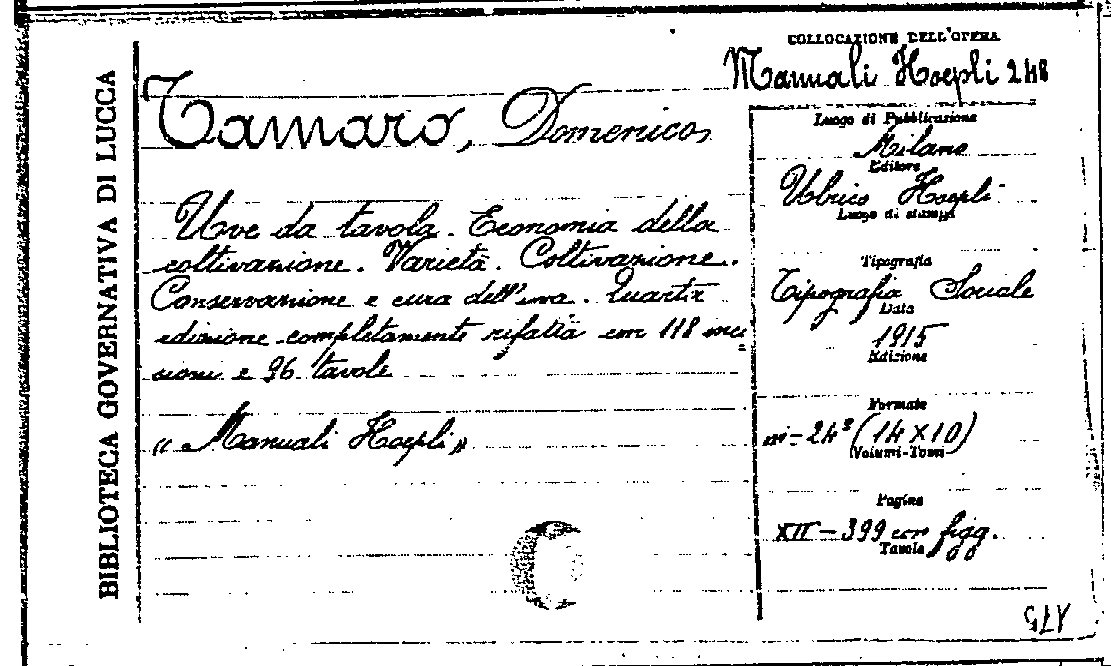 BIBLIOTECA GOVERNATIVA DI LUCCA
COLLOCAZIONE DELL'OPERA
Manuali Hoepli 248
Tamaro, Domenico,
Uve da tavola. Economia della
coltivazione. Varietà. Coltivazione.
Conservazione e cura dell'uva. Quarta
edizione completamente rifatta con 118 inci=
sioni e 96 tavole
« Manuali Hoepli »
Luogo di Pubblicazione
Milano
Editore
Ulrico Hoepli
Luogo di stampa
Tipografia
Tipografia Sociale
Data
1915
Edizione
Formato
in-24° (14 X 10)
(Volumi-Tomi)
Pagine
XII-399 con figg.
Tavole